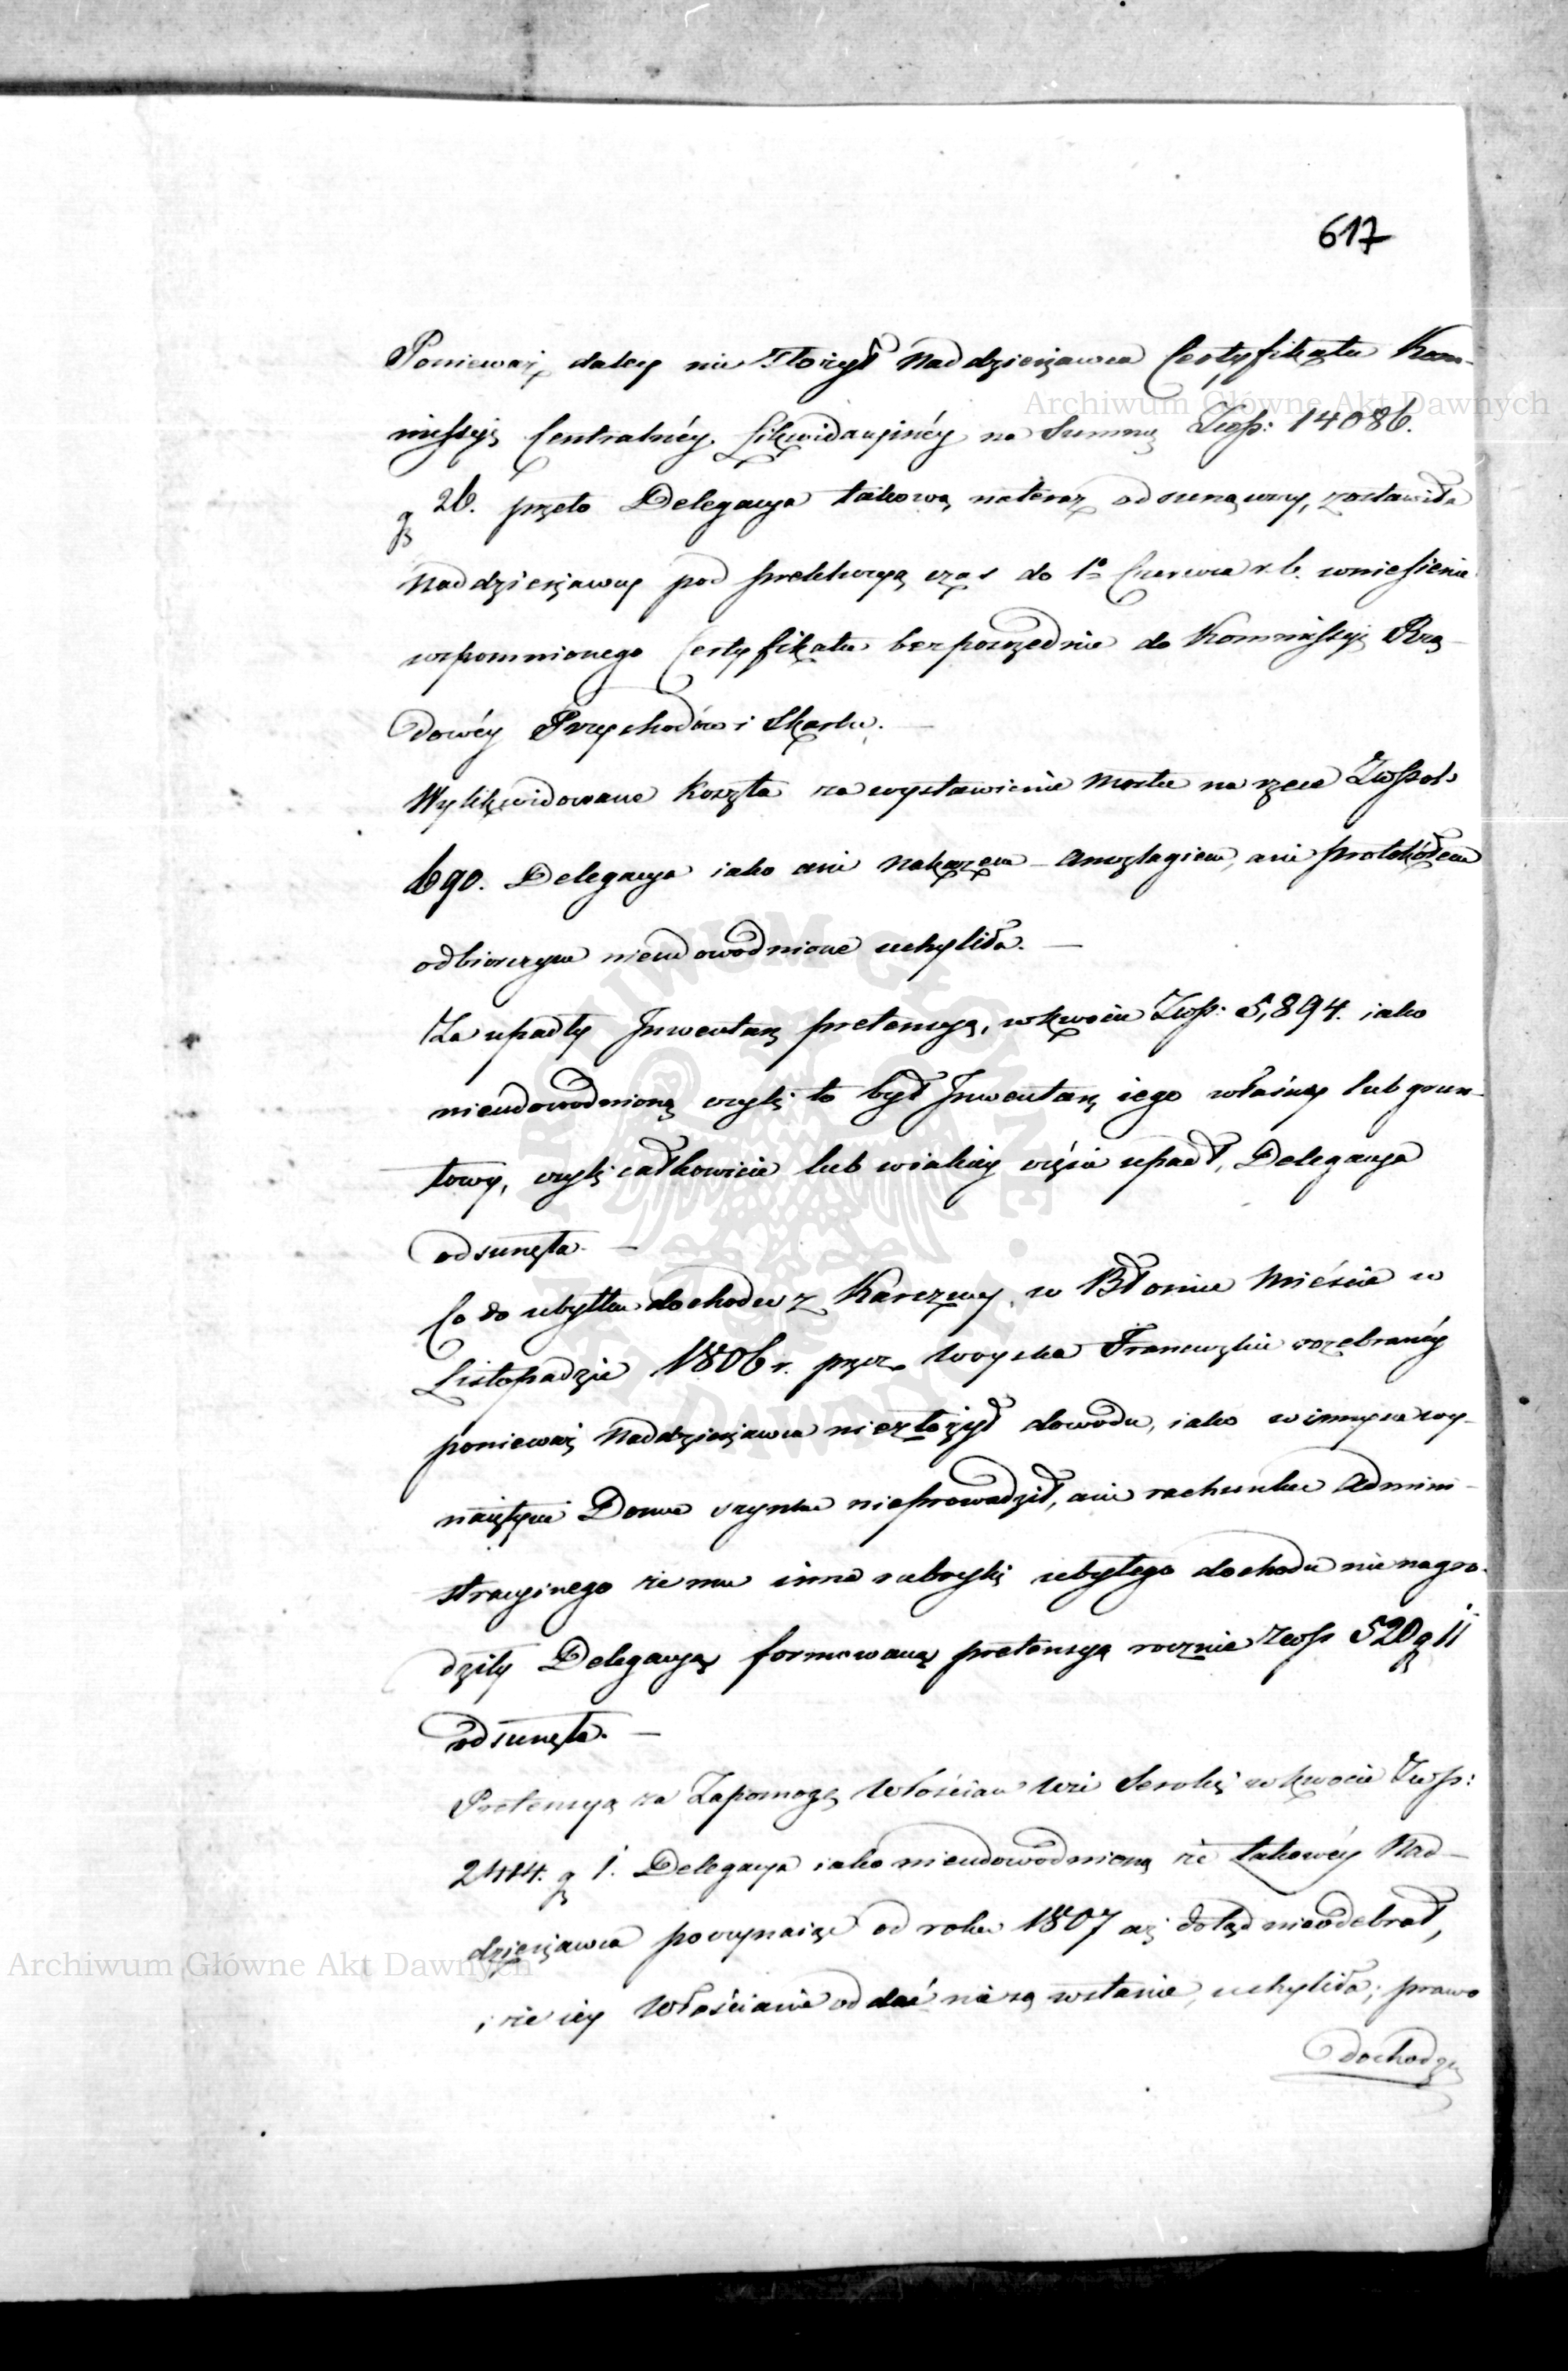 617
Ponieważ daley nie złożył Naddzierżawca Certyfikatu Kom-
missyi Centralnéy Likwidacyinéy na Summę Złłp: 14086.
g 26. przeto Delegacya takową nateraz odsunąwszy, zostawiła
Naddzierżawcy pod prekluzyą czas do 1º Czerwca r. b. wniesienia
wspomnionego Certyfikatu bezpośrzednie do Kommissyi Rzą-
dowéy Przychodów i Skarbu. —
Wylikwidowane koszta za wystawienie Mostu na rzece Złłpol:
690. Delegacya iako ani nakazem - Anszlagiem, ani protokółem
odbiorczym nieudowodnione uchyliła. —
Za upadły Inwentarz pretensyą, w kwocie Złłp: 5,894. iako
nieudowodnioną czyli to był Inwentarz iego własny lub grun-
towy, czyli całkowicie lub wiakiéy części upadł, Delegacya
odsunęła. —
Co do ubytku dochodu z Karczmy w Błoniu Mieście w
Listopadzie 1806 r. przez Woyska Francuzkie rozebranéy
ponieważ Naddzierżawca niezłożył dowodu, iako w innym wy-
naiętym Domu szynku nieprowadził, ani rachunku Admini-
stracyinego że mu inne rubryki ubyłego dochodu nie nagro-
dziły Delegacya formowaną pretensyą rocznie Złłp 520 g 11
odsunęła. —
Pretensyą za Zapomogę Włościan Wsi Seroki w kwocie Złłp:
2414. g 1. Delegacya iako nieudowodnioną że takowéy Nad-
dzierżawca poczynaiąc od roku 1807 aż dotąd nieodebrał,
i że iey Włościanie oddać nie są wstanie, uchyliła; prawo
dochodze
Archiwum Główne Akt Dawnych
Archiwum Główne Akt Dawnych
ARCHIWUM GŁÓWNE AKT DAWNYCH